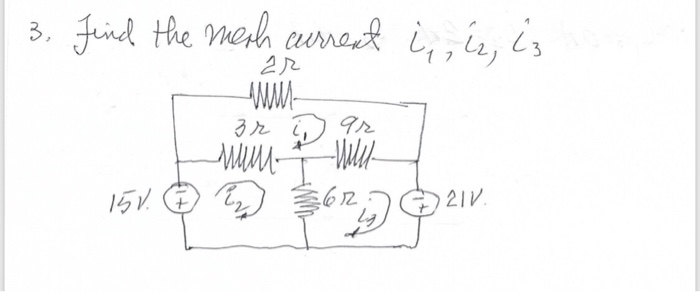 3. Find the mesh current i₁, i₂, i₃
2Ω
3Ω i₁ 9Ω
15V. - + i₂ 6Ω i₃ - + 21V.